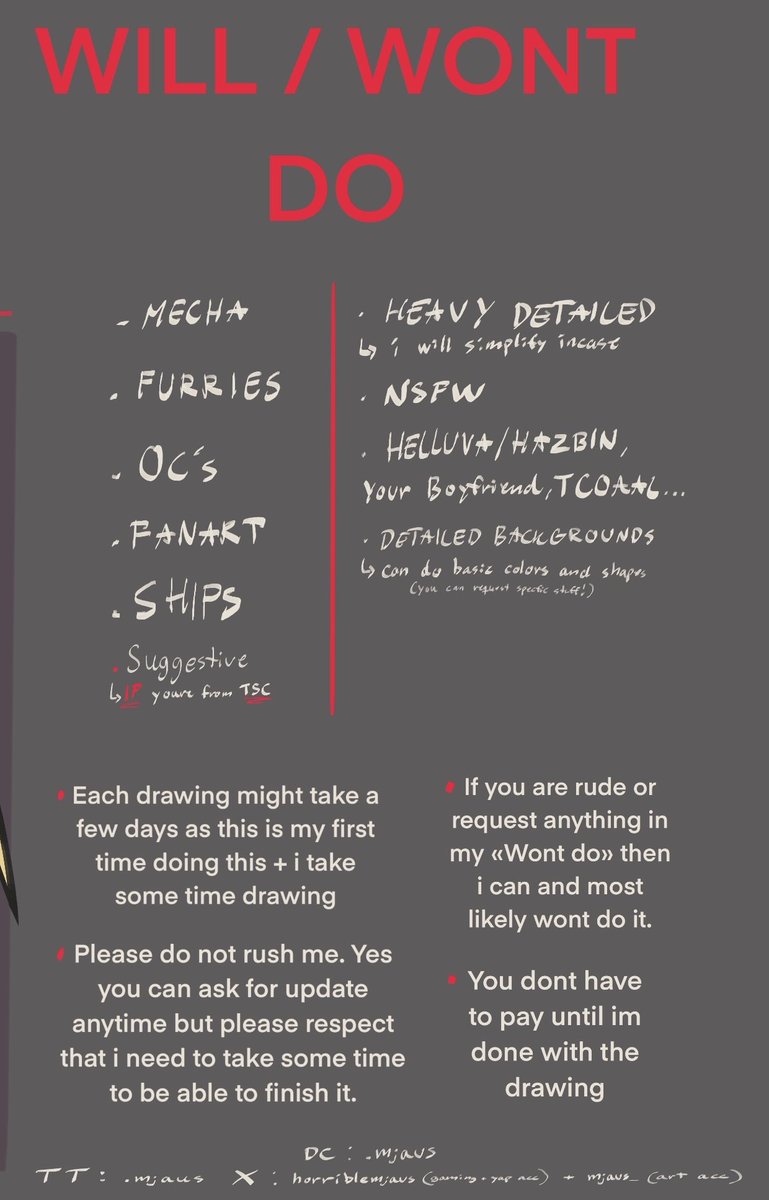 WILL / WONT
DO
- MECHA
. FURRIES
. OC's
. FANART
. SHIPS
. Suggestive
↳ IF youre from TSC
· HEAVY DETAILED
↳ i will simplify incase
· NSFW
· HELLUVA/HAZBIN,
Your Boyfriend, TCOAAL...
· DETAILED BACKGROUNDS
↳ can do basic colors and shapes
(you can request specific stuff!)
• Each drawing might take a
few days as this is my first
time doing this + i take
some time drawing
• Please do not rush me. Yes
you can ask for update
anytime but please respect
that i need to take some time
to be able to finish it.
• If you are rude or
request anything in
my «Wont do» then
i can and most
likely wont do it.
• You dont have
to pay until im
done with the
drawing
DC : .mjaus
TT : .mjaus X : horriblemjaus (gaming + yap acc) + mjaus_ (art acc)